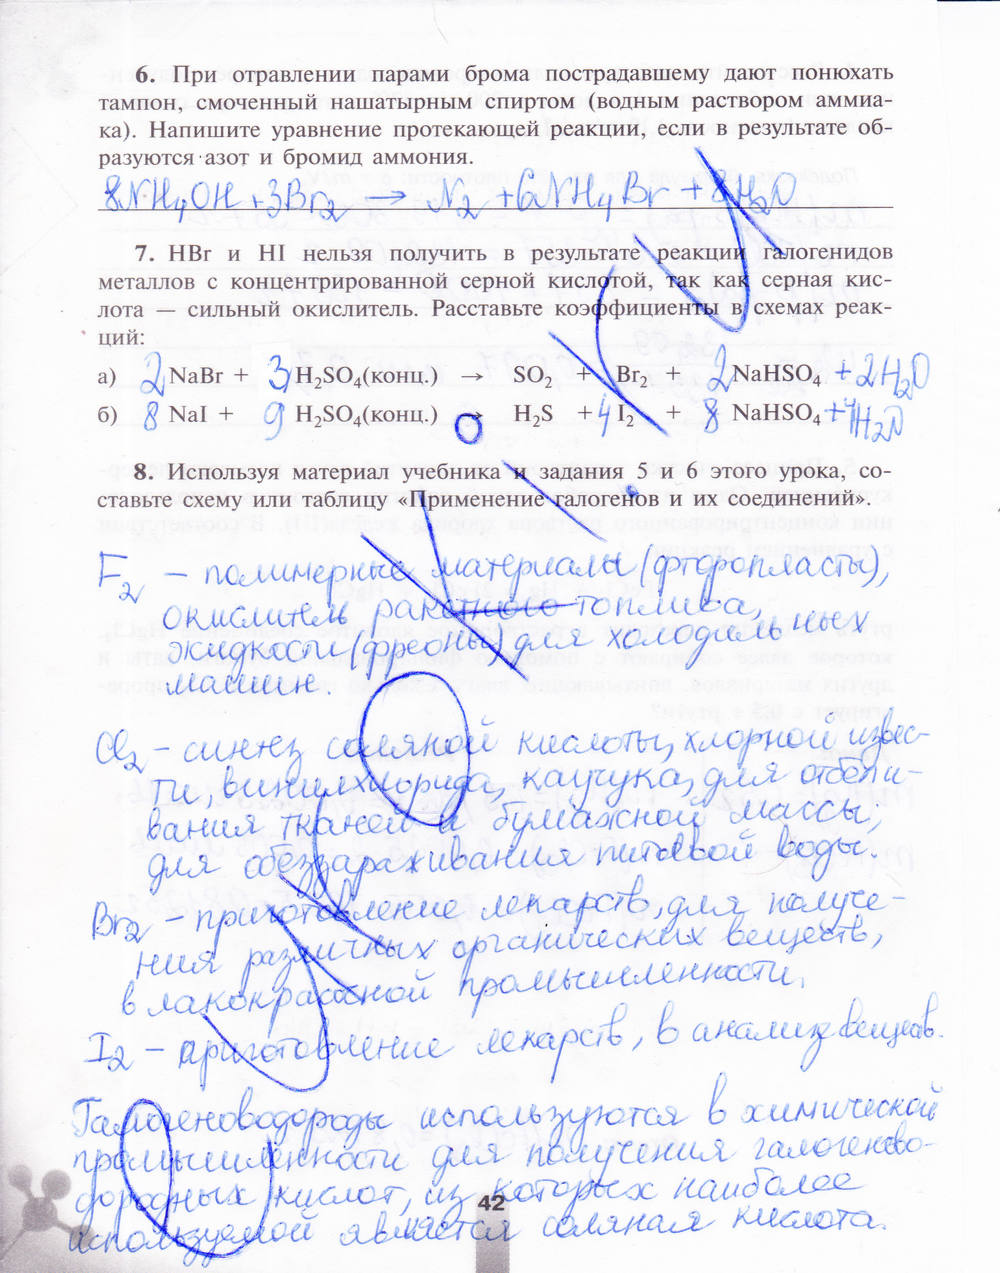 6. При отравлении парами брома пострадавшему дают понюхать
тампон, смоченный нашатырным спиртом (водным раствором аммиа-
ка). Напишите уравнение протекающей реакции, если в результате об-
разуются азот и бромид аммония.
8NH₄OH + 3Br₂ → N₂ + 6NH₄Br + 8H₂O
7. HBr и HI нельзя получить в результате реакции галогенидов
металлов с концентрированной серной кислотой, так как серная кис-
лота — сильный окислитель. Расставьте коэффициенты в схемах реак-
ций:
а) 2 NaBr + 3 H₂SO₄(конц.) → SO₂ + Br₂ + 2 NaHSO₄ + 2H₂O
б) 8 NaI + 9 H₂SO₄(конц.) → H₂S + 4 I₂ + 8 NaHSO₄ + 4H₂O
8. Используя материал учебника и задания 5 и 6 этого урока, со-
ставьте схему или таблицу «Применение галогенов и их соединений».
F₂ – полимерные материалы (фторопласты),
окислитель ракетного топлива,
жидкости (фреоны) для холодильных
машин.
Cl₂ – синтез соляной кислоты, хлорной извес-
ти, винилхлорида, каучука, для отбели-
вания тканей и бумажной массы;
для обеззараживания питьевой воды.
Br₂ – приготовление лекарств, для получе-
ния различных органических веществ,
в лакокрасочной промышленности.
I₂ – приготовление лекарств, в анализ веществ.
Галогеноводороды используются в химической
промышленности для получения галогенво-
дородных кислот, из которых наиболее
используемой является соляная кислота.
42